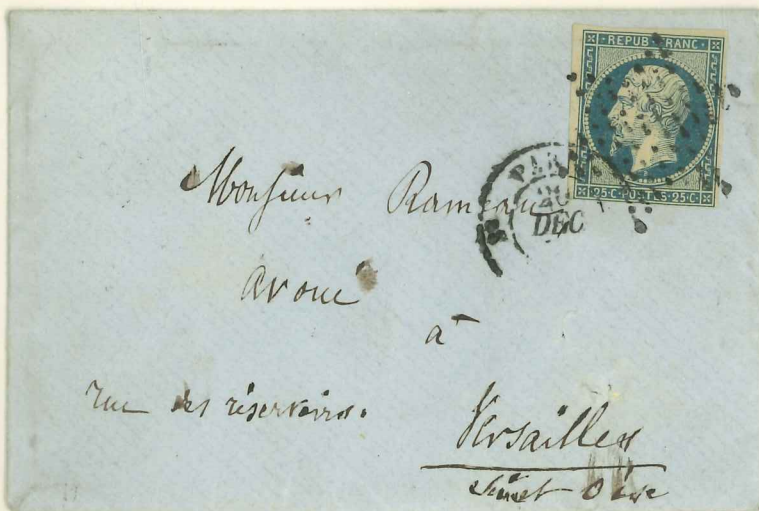 REPUB FRANC
25·C·POSTES·25·C
PAR
DEC
Monsieur Rameau
avoué
à
rue des réservoirs.
Versailles
Seine et Oise